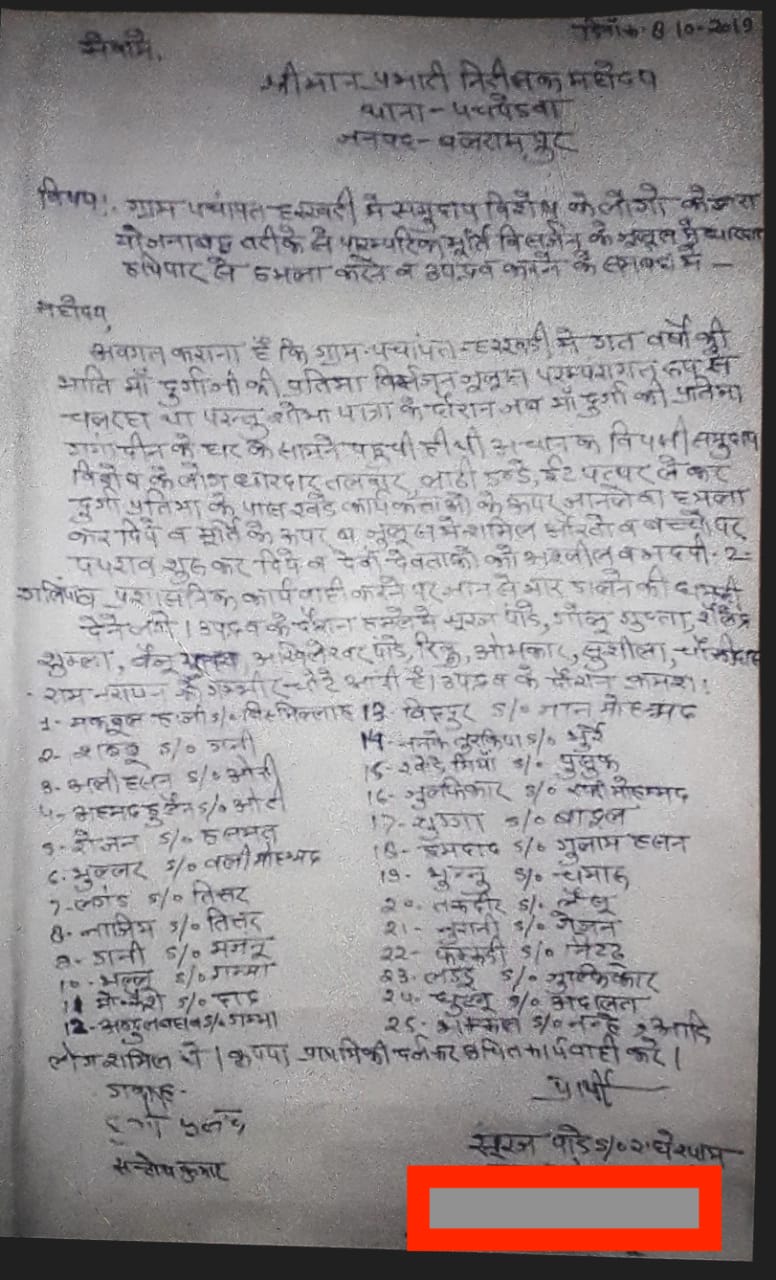 दिनाँक: 8 10-2019
सेवामे,
श्रीमान प्रभारी निरीक्षक महोदय
थाना - पचपेडवा
जनपद - बलरामपुर
विषय:. ग्राम पंचायत हरखडी मे समुदाय विशेष के लोगो के द्वारा
योजनाबद्ध तरीके से परम्परिक मूर्ति विसर्जन के जुलूस मे धारदार
हथियार से हमला करने व उपद्रव करने के सम्बन्ध मे —
महोदय,
अवगत कराना है कि ग्राम-पंचायत-हरखडी मे गत वर्षो की
भाति माँ दुर्गा जी की प्रतिमा विसर्जन जुलूस परम्परागत रूप से
चल रहा था परन्तु शोभा यात्रा के दौरान जब माँ दुर्गा की प्रतिमा
गंगादीन के घर के सामने पहुची ही थी अचानक विपक्षी समुदाय
विशेष के लोग धारदार तलवार, लाठी डन्डे, ईट पत्थर लेकर
दुर्गा प्रतिमा के पास खडे कार्यकर्ताओ के ऊपर जानलेवा हमला
कर दिये व मूर्ति के ऊपर व जुलूस मे शामिल औरतो व बच्चो पर
पथराव शुरू कर दिये व देवी देवताओ को अश्लील व भद्दी-2-
गालियाँ व प्रशासनिक कार्यवाही करने पर जान से मार डालने की धमकी
देने लगे। उपद्रव के दौरान हमले मे सूरज पांडे, गोलू गुप्ता, शैलेन्द्र
शुक्ला, अखिलेश्वर पांडे, रिन्कू, ओमकार, सुशीला, चौकीदार
राम नरायन को गम्भीर चोटे आयी है। उपद्रव के दौरान क्रमश:
1- मकबूल हाजी s/o बिस्मिल्लाह 13- s/o जान मोहम्मद
2- s/o जानी 14- s/o
3- अली हसन s/o 15- s/o युसुफ
4- अहमद हुसैन s/o 16- जुल्फिकार s/o मोहम्मद
5- रोजन s/o हसमत 17- s/o
6- भुल्लर s/o वली मोहम्मद 18- इमदाद s/o गुलाम हसन
7- s/o तिसर 19- मुन्नु s/o
8- नाजिम s/o तिसर 20- तकदीर s/o
9- जानी s/o 21- नुरानी s/o रोजन
10- s/o गम्मा 22- s/o
11- s/o 23- लडडू s/o जुल्फिकार
12- अब्दुल वहाब s/o गम्मा 24- s/o अदालत
25- s/o नन्हे आदि
लोग शामिल थे। कृपया प्राथमिकी दर्ज कर उचित कार्यवाही करे।
गवाह- प्रार्थी
दुर्गा प्रसाद
सन्तोष कुमार सूरज पांडे s/o राधेश्याम